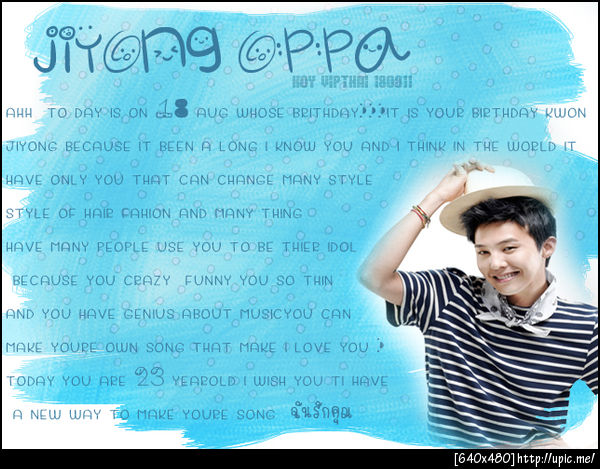 JIYONG OPPA
HOT VIPTHAI 180811
AHH TO DAY IS ON 18 AUG WHOSE BRITHDAY???IT IS YOUR BIRTHDAY KWON
JIYONG BECAUSE IT BEEN A LONG I KNOW YOU AND I THINK IN THE WORLD IT
HAVE ONLY YOU THAT CAN CHANGE MANY STYLE
STYLE OF HAIR FAHION AND MANY THING
HAVE MANY PEOPLE USE YOU TO BE THIER IDOL
BECAUSE YOU CRAZY FUNNY YOU SO THIN
AND YOU HAVE GENIUS ABOUT MUSICYOU CAN
MAKE YOURE OWN SONG THAT MAKE I LOVE YOU
TODAY YOU ARE 23 YEAROLD I WISH YOU TI HAVE
A NEW WAY TO MAKE YOURE SONG ฉันรักคุณ
[640x480]http://upic.me/